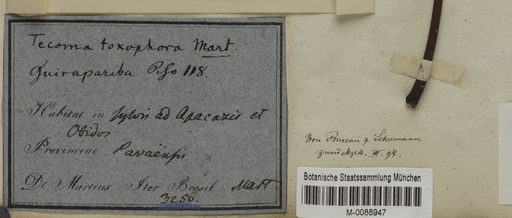 Tecoma toxophora Mart.
Guirapariba Piso 118.
Habitat in sylvis ad Apacaxis et
Obidos
Provinciae Paraënsis
De Martius Iter Brasil. Mart
3250.
Von Bureau & Schumann
zurückgek. III. 94.
Botanische Staatssammlung München
M-0088947